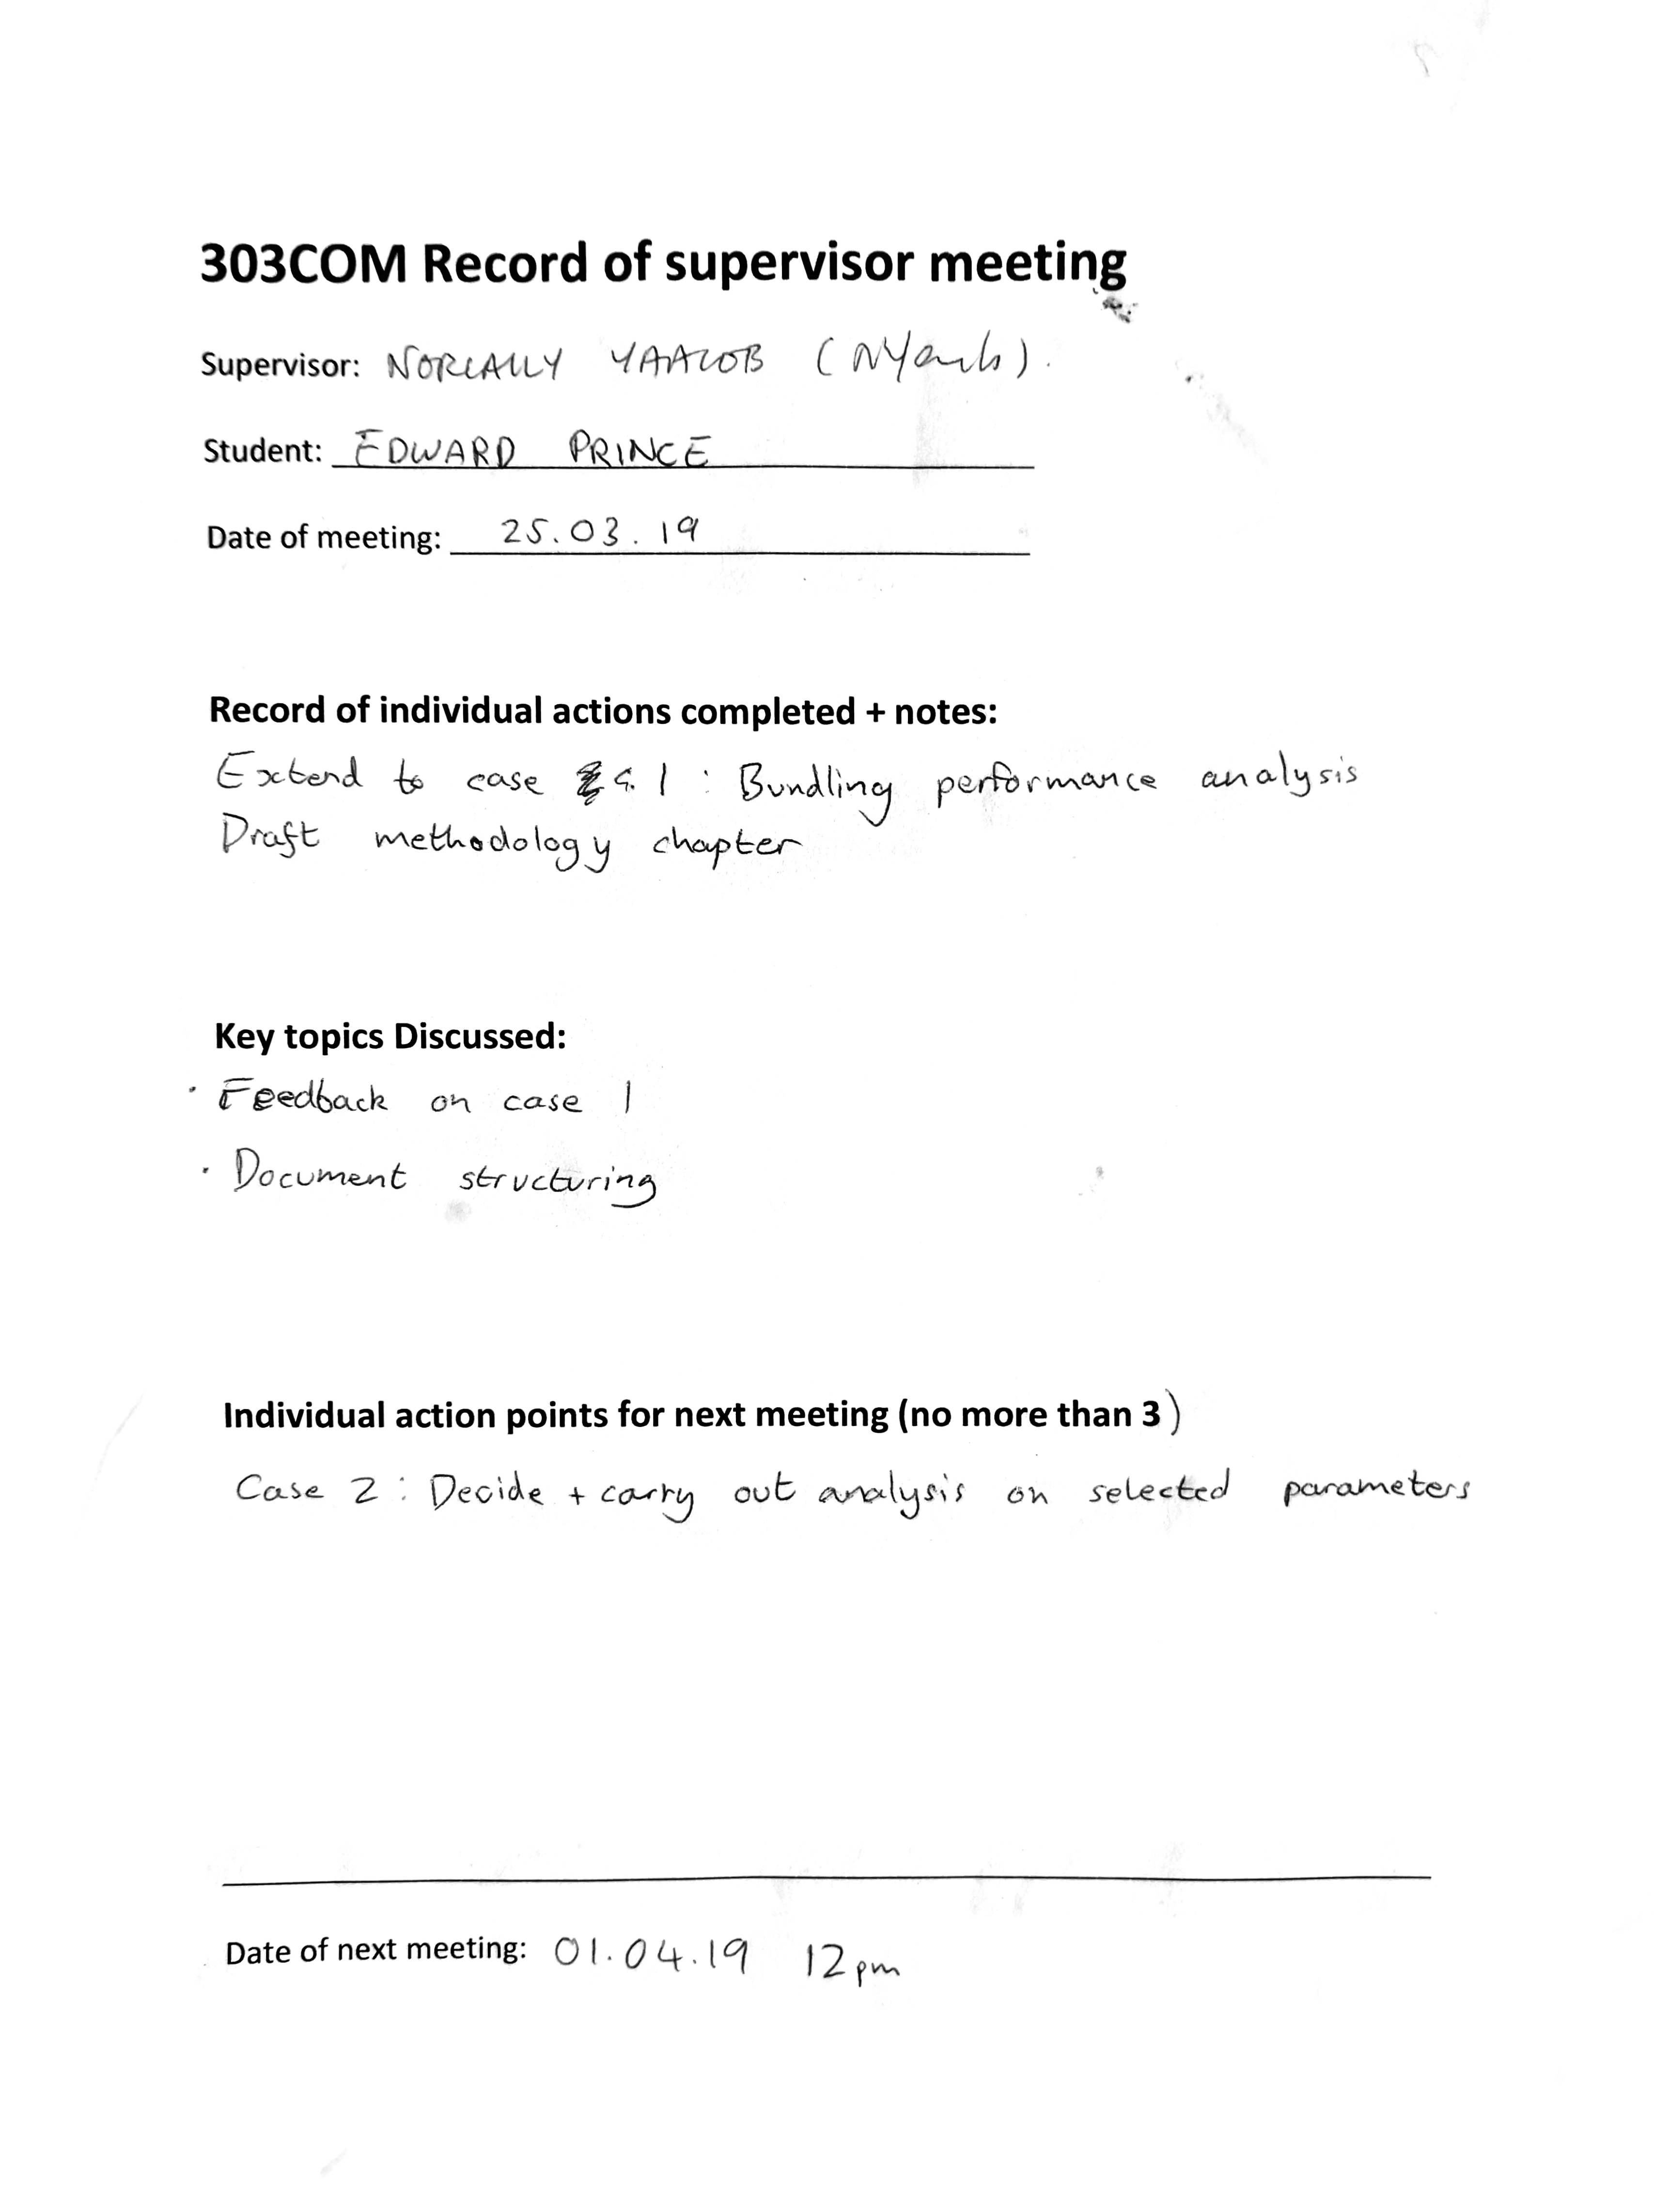 303COM Record of supervisor meeting
Supervisor: NORLAILY YAACOB (NYaacob).
Student: EDWARD PRINCE
Date of meeting: 25.03.19
Record of individual actions completed + notes:
Extend to case 1 : Bundling performance analysis
Draft methodology chapter
Key topics Discussed:
· Feedback on case 1
· Document structuring
Individual action points for next meeting (no more than 3)
Case 2 : Decide + carry out analysis on selected parameters
Date of next meeting: 01.04.19 12pm